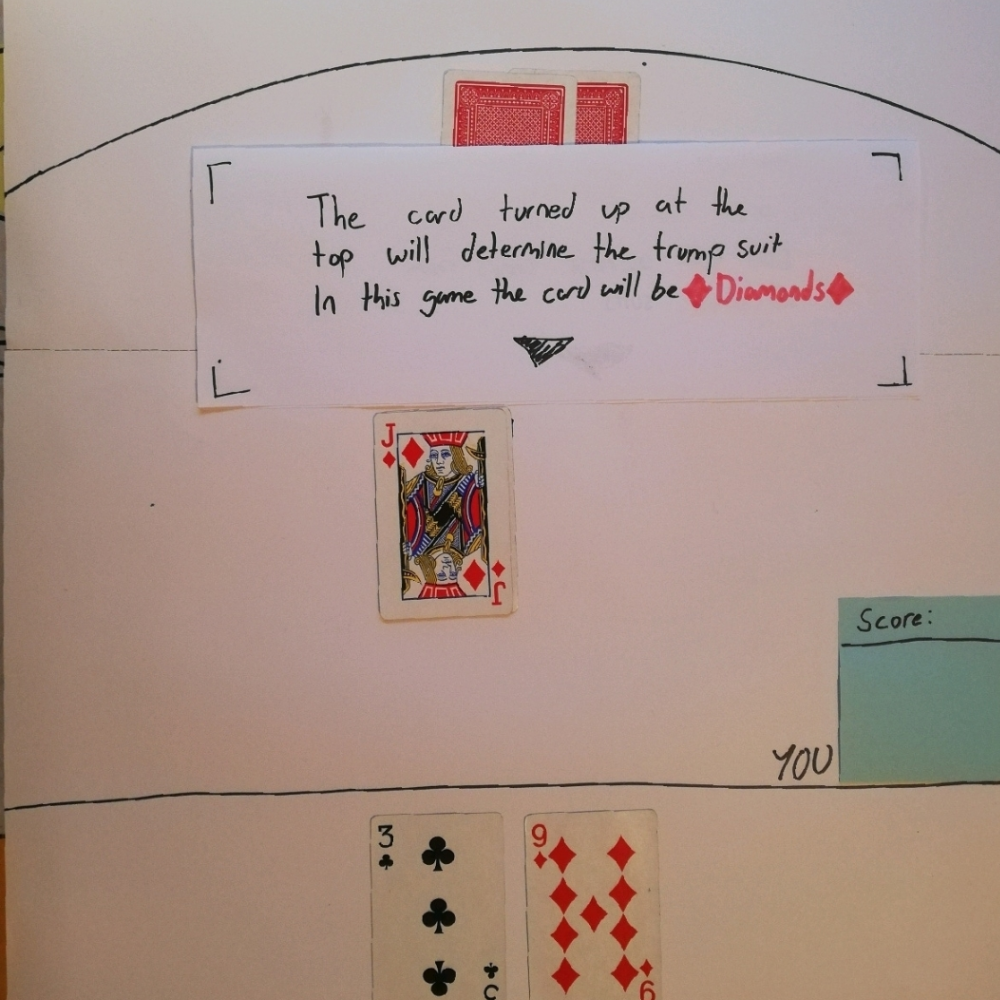 The card turned up at the
top will determine the trump suit
In this game the card will be ♦Diamonds♦
J
J
Score:
YOU
3
9
3
9